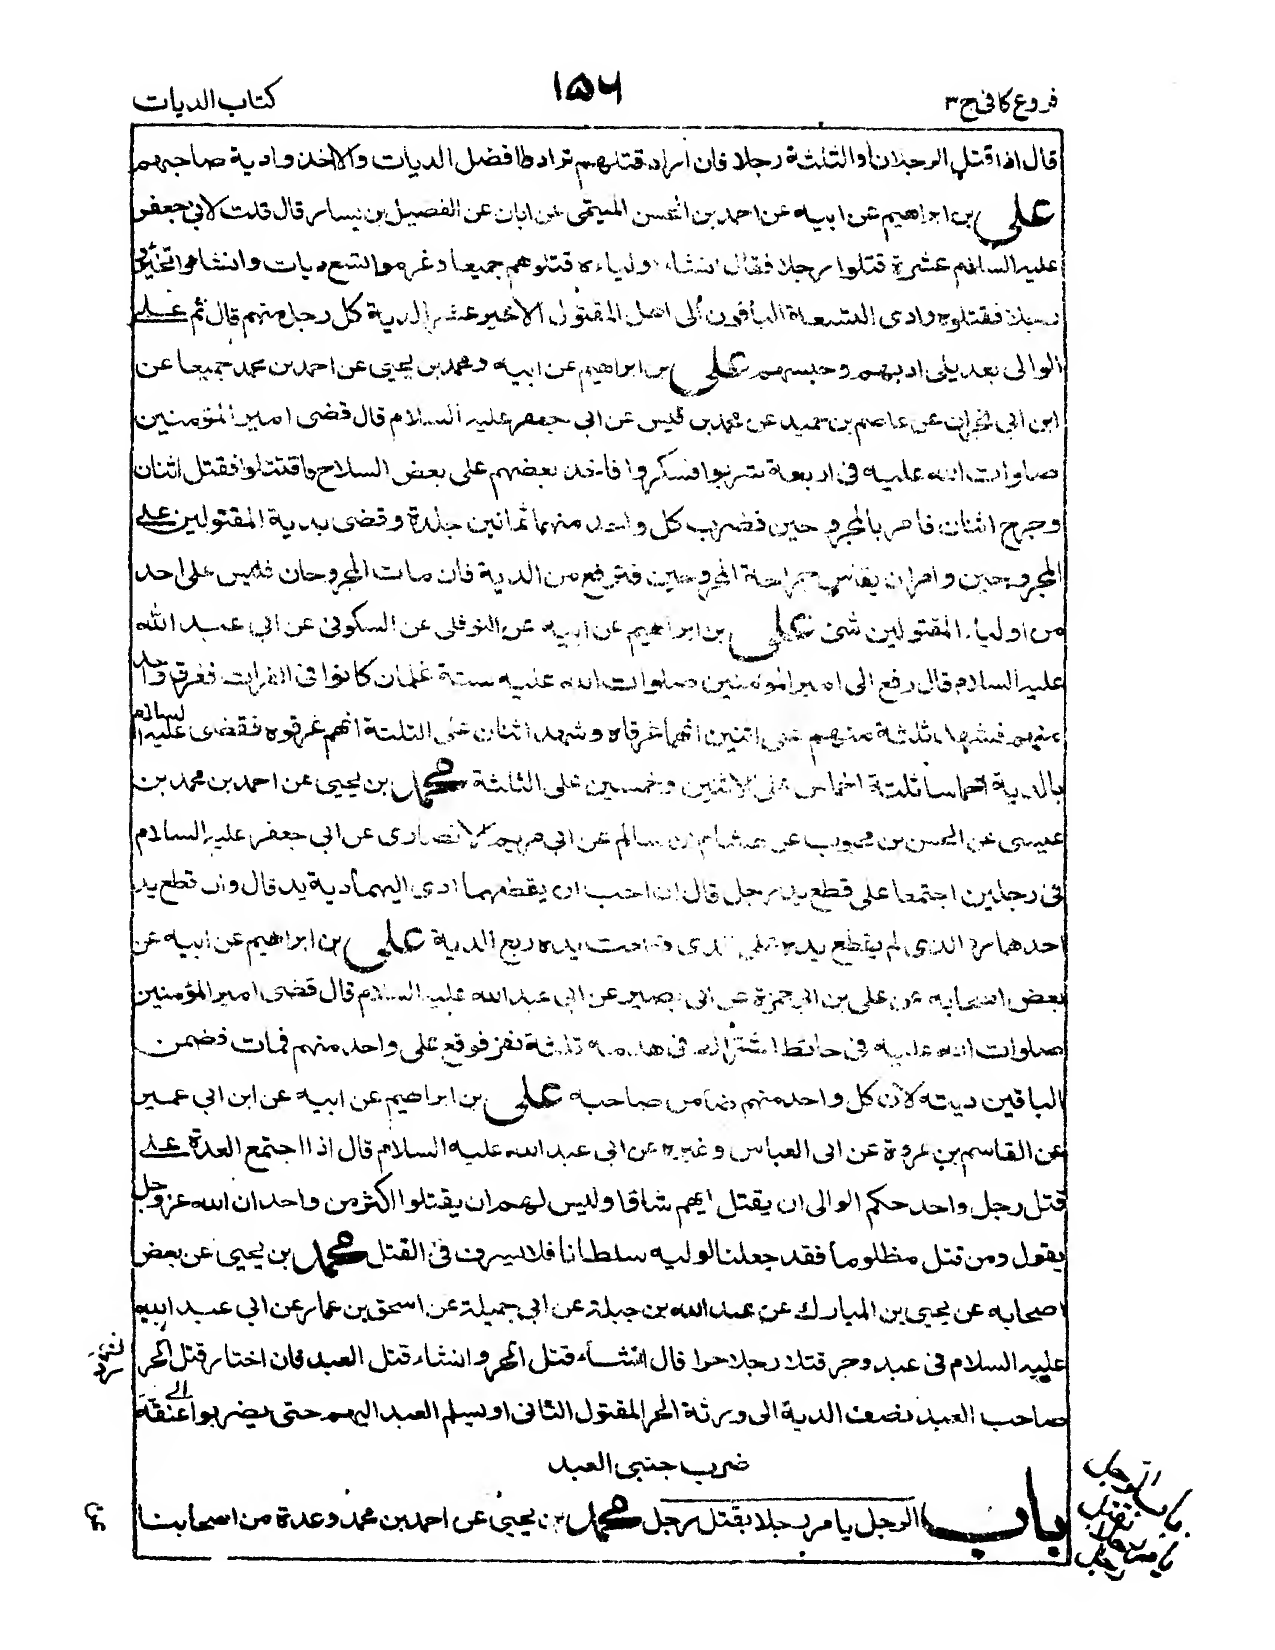 فروع کافی ج ۳
۱۵۶
کتاب الدیات
قال اذا قتل الرجلان او الثلثة رجلا فان اراد قتلهم تراد وا فضل الدیات والا اخذ وا دیة صاحبهم
علی بن ابراهیم عن ابیه عن احمد بن الحسن المیثمی عن ابان عن الفضیل بن یسار قال قلت لابی جعفر
علیه السلام عشرة قتلوا رجلا فقال انشاء اولیاءه قتلوهم جمیعا وغرموا تسع دیات وانشاءوا تخیروا
رجلا فقتلوه وادی التسعة الباقون الی اهل المقتول الاخیر عشر الدیة کل رجل منهم قال ثم علے
الوالی بعد یلی ادبهم وحبسهم علی بن ابراهیم عن ابیه ومحمد بن یحیی عن احمد بن محمد جمیعا عن
ابن ابی نجران عن عاصم بن حمید عن محمد بن قیس عن ابی جعفر علیه السلام قال قضی امیر المؤمنین
صلوات الله علیه فی اربعة شربوا فسکروا فاخذ بعضهم علی بعض السلاح فاقتتلوا فقتل اثنان
وجرح اثنان فامر بالمجروحین فضرب کل واحد منهما ثمانین جلدة وقضی بدیة المقتولین علے
المجروحین وامر ان یقاس جراحة المجروحین فترفع من الدیة فان مات المجروحان فلیس علی احد
من اولیاء المقتولین شئ علی بن ابراهیم عن ابیه عن النوفلی عن السکونی عن ابی عبد الله
علیه السلام قال رفع الی امیر المؤمنین صلوات الله علیه ستة غلمان کانوا فی الفرات فغرق واحد
منهم فشهد ثلثة منهم علی اثنین انهما غرقاه وشهد اثنان علی الثلثة انهم غرقوه فقضی علیه السلام
بالدیة اخماسا ثلثة اخماس علی الاثنین وخمسین علی الثلثة محمد بن یحیی عن احمد بن محمد بن
عیسی عن الحسن بن محبوب عن هشام بن سالم عن ابی مریم الانصاری عن ابی جعفر علیه السلام
فی رجلین اجتمعا علی قطع ید رجل قال ان احب ان یقطعهما ادی الیهما دیة ید قال وان قطع ید
احدهما رد الذی لم یقطع یده علی الذی قطعت یده ربع الدیة علی بن ابراهیم عن ابیه عن
بعض اصحابه عن علی بن ابی حمزة عن ابی بصیر عن ابی عبد الله علیه السلام قال قضی امیر المؤمنین
صلوات الله علیه فی حائط اشترک فی هدمه ثلثة نفر فوقع علی واحد منهم فمات فضمن
الباقین دیته لان کل واحد منهم ضامن صاحبه علی بن ابراهیم عن ابیه عن ابن ابی عمیر
عن القاسم بن عروة عن ابی العباس وغیره عن ابی عبد الله علیه السلام قال اذا اجتمع العدة علے
قتل رجل واحد حکم الوالی ان یقتل ایهم شاؤا ولیس لهم ان یقتلوا اکثر من واحد ان الله عز وجل
یقول ومن قتل مظلوما فقد جعلنا لولیه سلطانا فلا یسرف فی القتل محمد بن یحیی عن بعض
اصحابه عن یحیی بن المبارک عن عبد الله بن جبلة عن ابی جمیلة عن اسحق بن عمار عن ابی عبد الله
علیه السلام فی عبد وحر قتلا رجلا حرا قال انشاء قتل الحر وانشاء قتل العبد فان اختار قتل الحر
صاحب العبد نصف الدیة الی ورثة الحر المقتول الثانی او یسلم العبد الیهم حتی یضربوا عنقه
ضرب جنبی العبد
باب الرجل یامر رجلا بقتل رجل محمد بن یحیی عن احمد بن محمد وعدة من اصحابنا
باب الرجل
یامر رجلا
بقتل
رجل